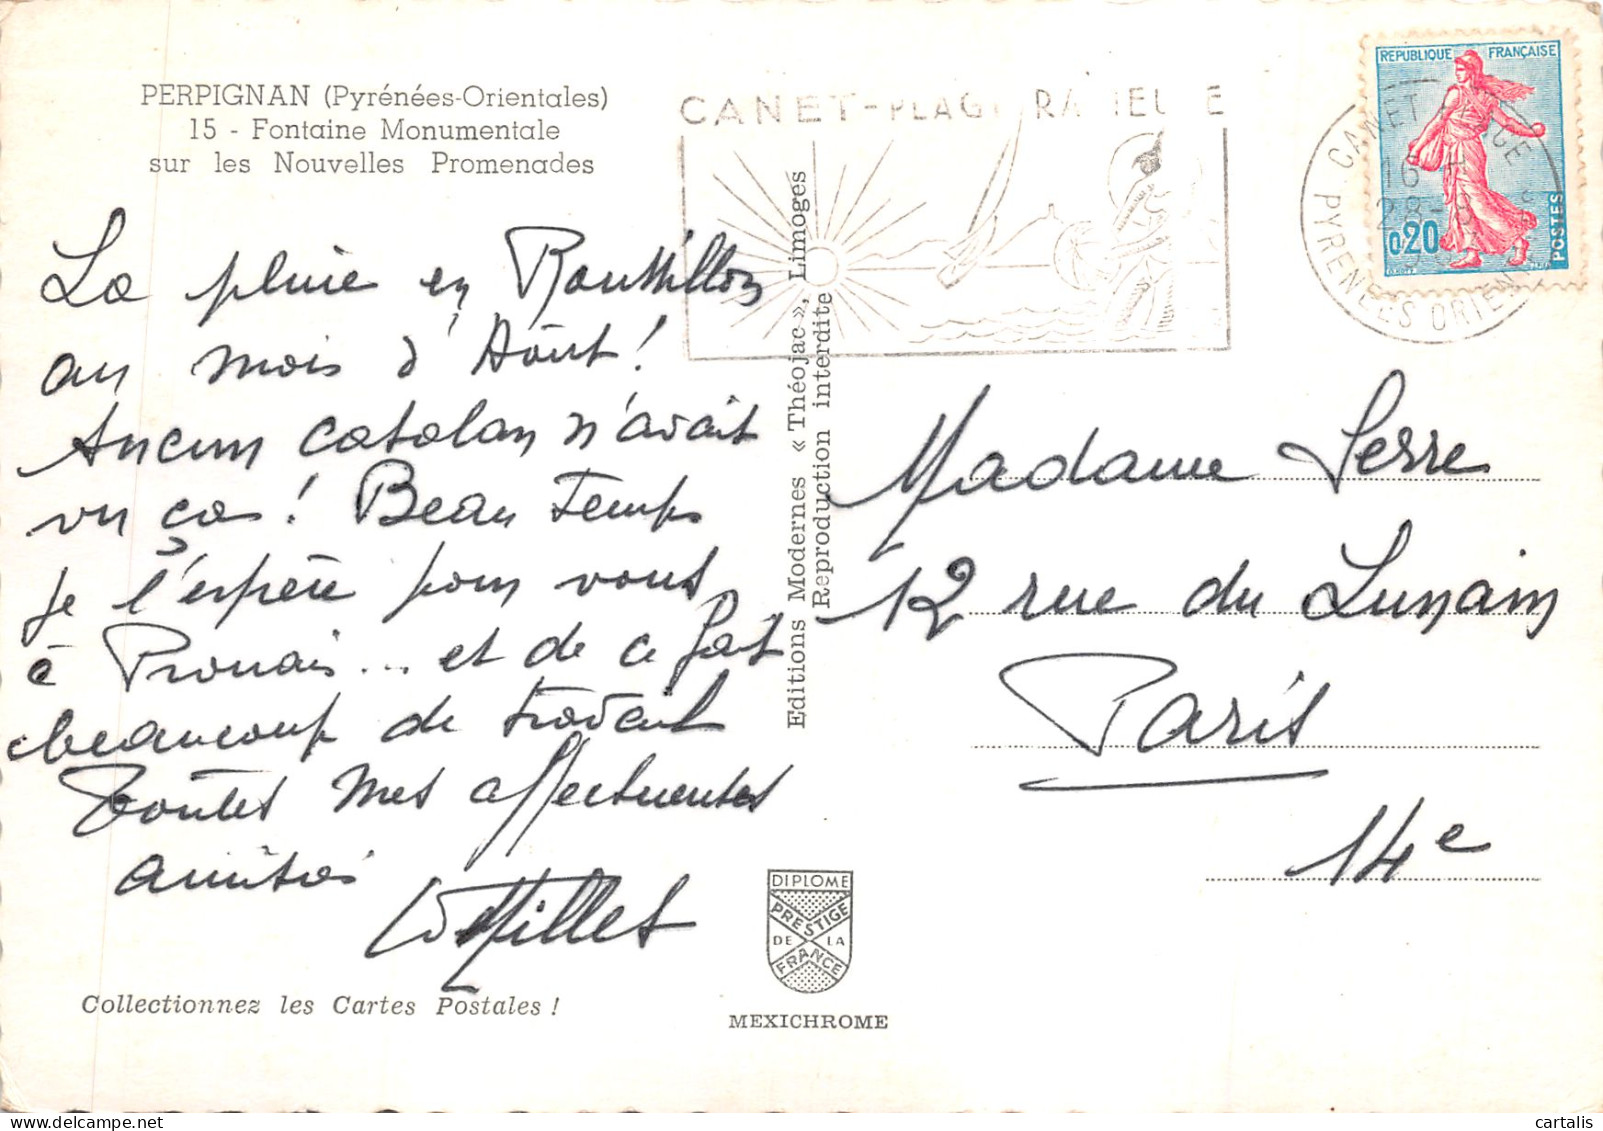 PERPIGNAN (Pyrénées-Orientales)
15 - Fontaine Monumentale
sur les Nouvelles Promenades
La pluie en Roussillon
au mois d'Août !
Aucun catalan n'avait
vu ça ! Beau temps
je l'espère pour vous
à Pronais... et de ce fait
beaucoup de travail
Toutes mes affectueuses
amitiés
Millet
Collectionnez les Cartes Postales !
Editions Modernes « Théojac », Limoges
Reproduction interdite
DIPLOME
PRESTIGE
DE LA
FRANCE
MEXICHROME
CANET-PLAGE
CANET PLAGE
16 H
28-8
PYRENEES ORIENTALES
REPUBLIQUE FRANÇAISE
0,20
POSTES
Madame Serre
12 rue du Lunain
Paris
14e
cartalis
www.delcampe.net